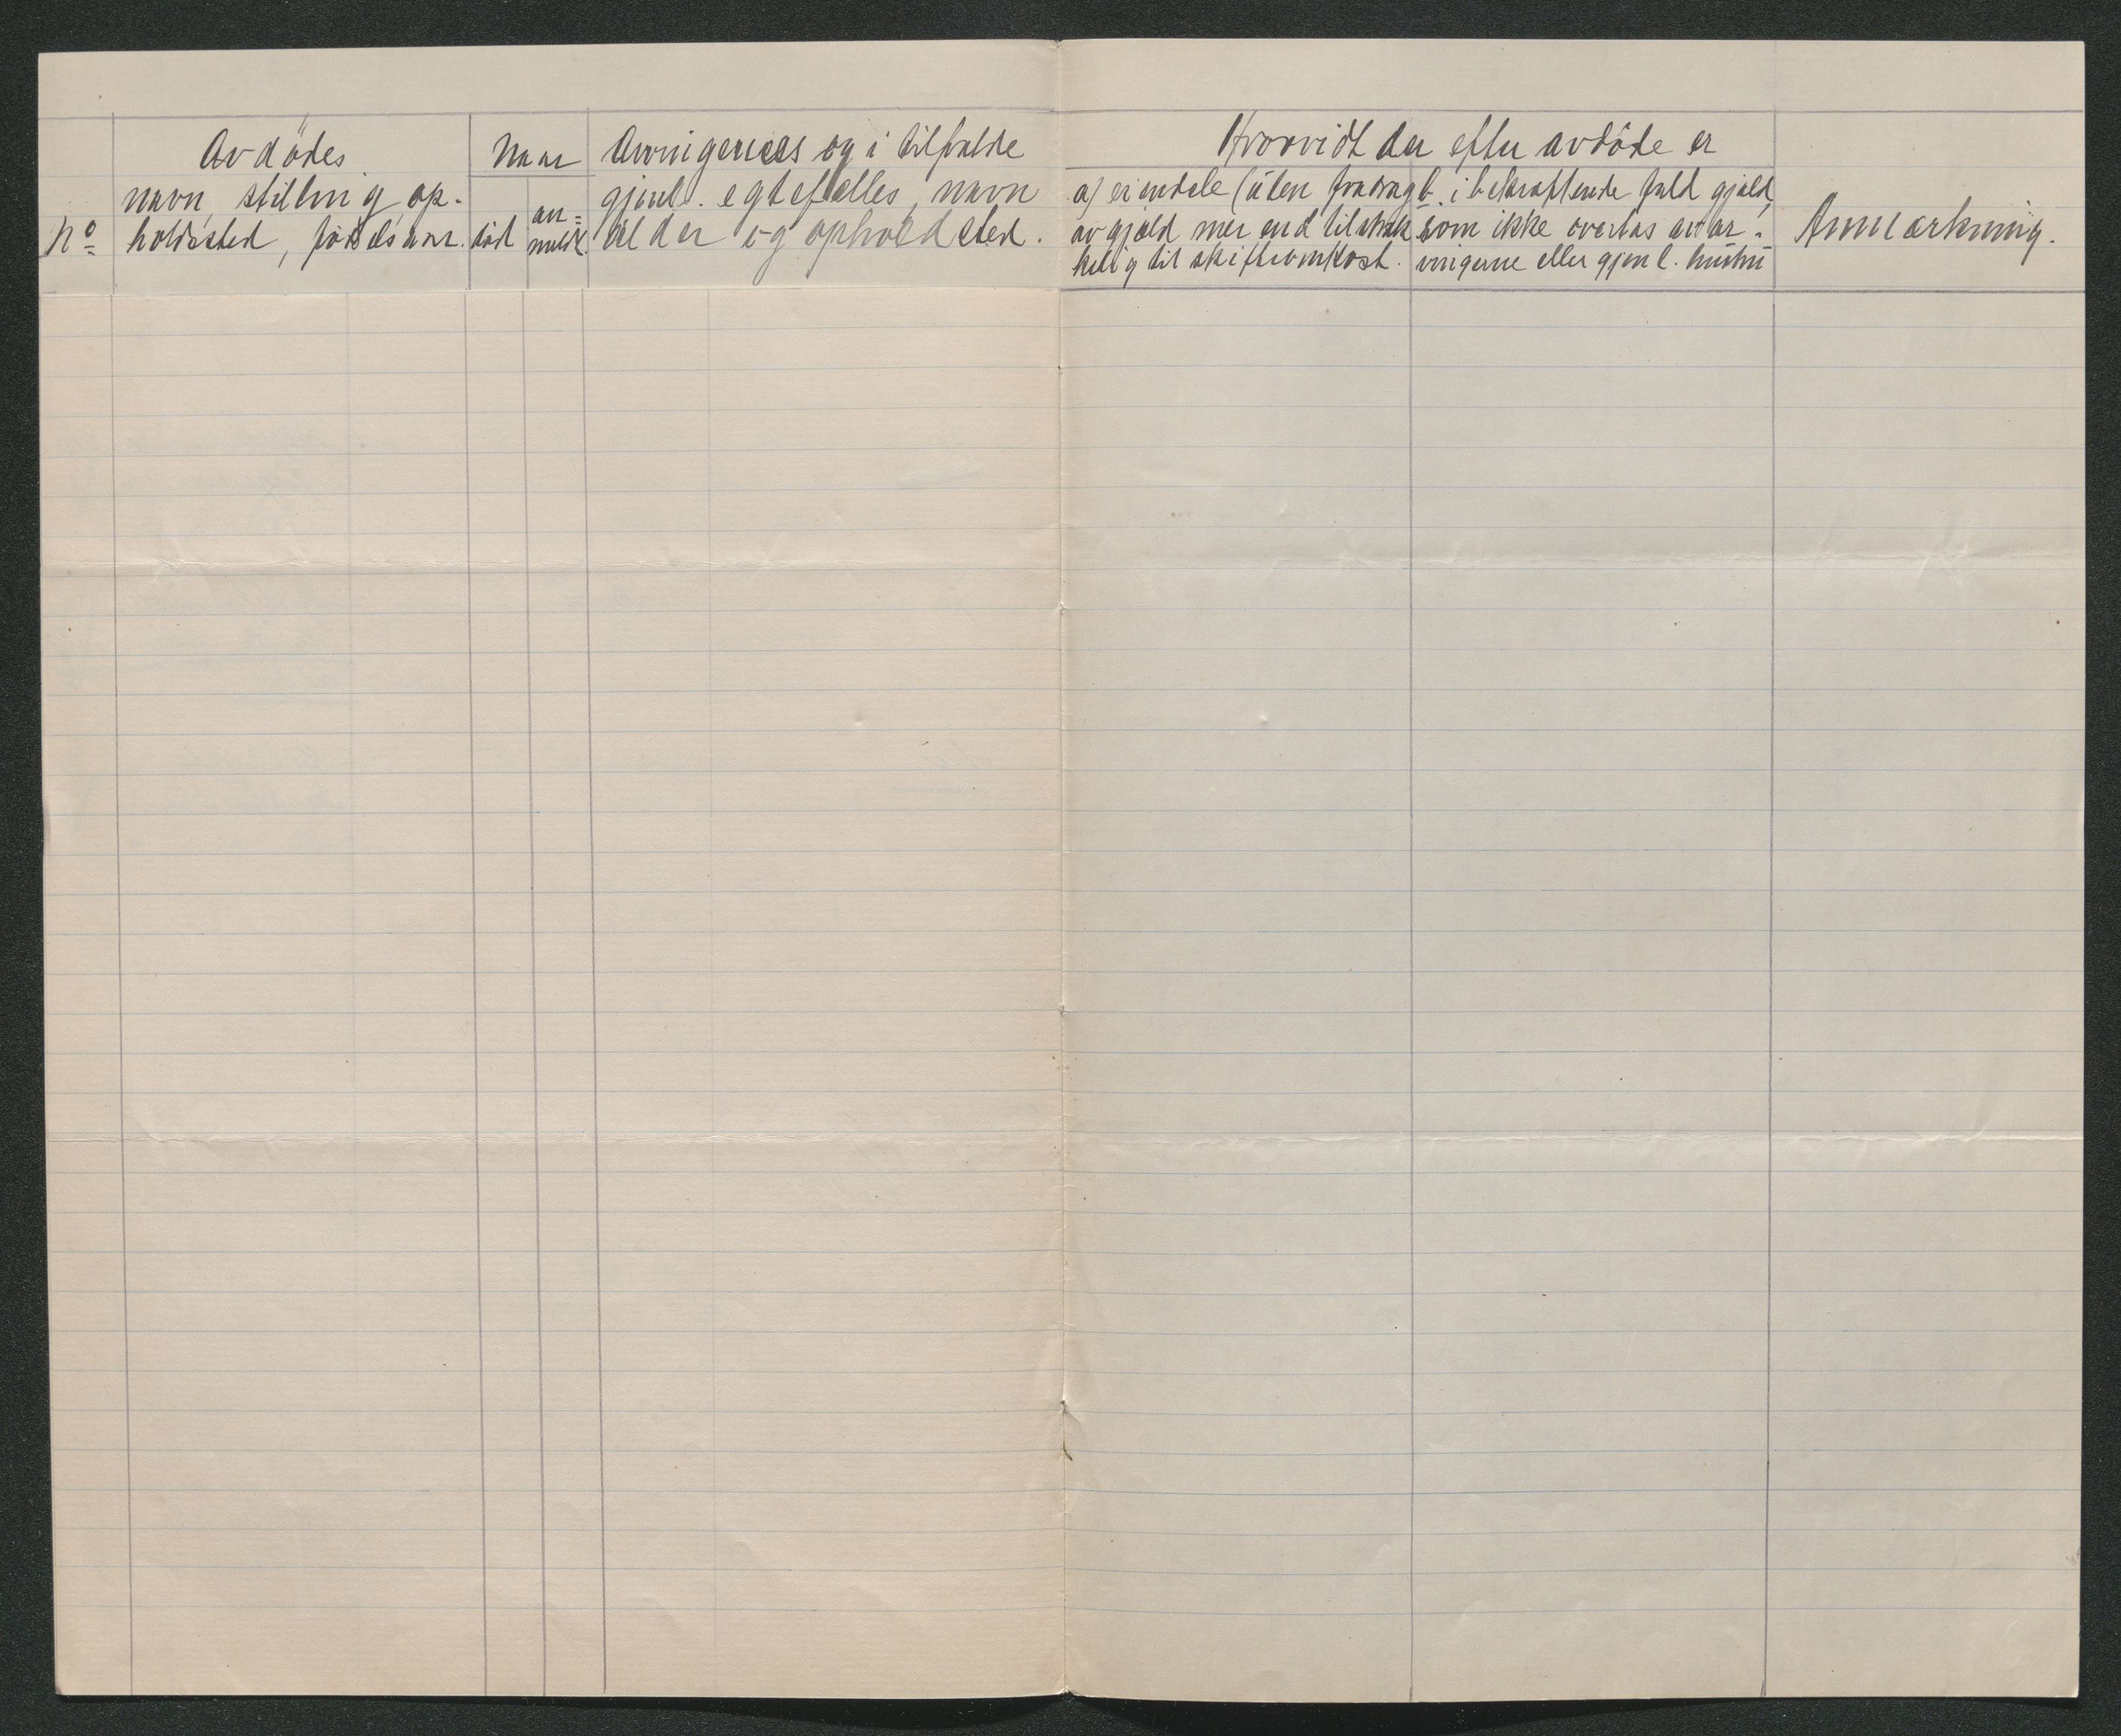 No
Avdödes
navn, stilling, op-
holdssted, födselsaar.
Naar
död
an=
meldt.
Arvingernes og i tilfælde
gjenl. egtefælles, navn
alder og opholdsted.
Hvorvidt der efter avdöde er
a) eiendele (uten fradrag
av gjæld mer end tilstræk
kelig til skifteomkost.
b. i bekræftende fald gjæld,
som ikke overtas av ar-
vingerne eller gjenl.
Anmærkning.